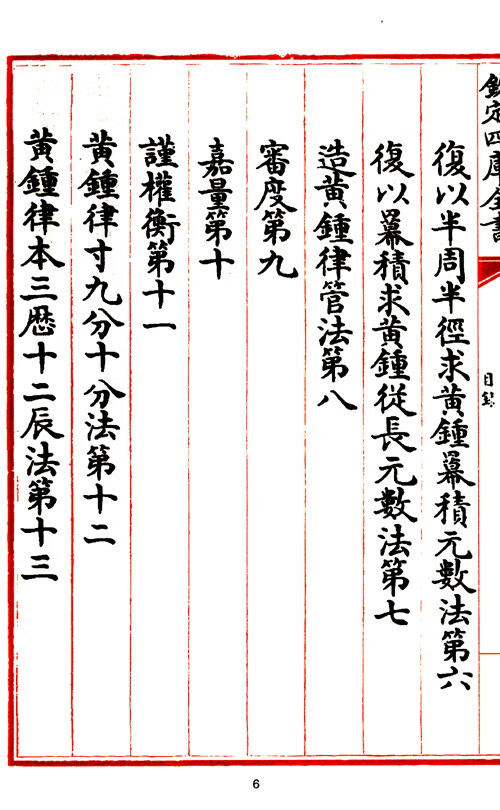 欽定四庫全書
目録
復以半周半徑求黃鍾冪積元數法第六
復以冪積求黃鍾從長元數法第七
造黃鍾律管法第八
審度第九
嘉量第十
謹權衡第十一
黃鍾律寸九分十分法第十二
黃鍾律本三歴十二辰法第十三
6